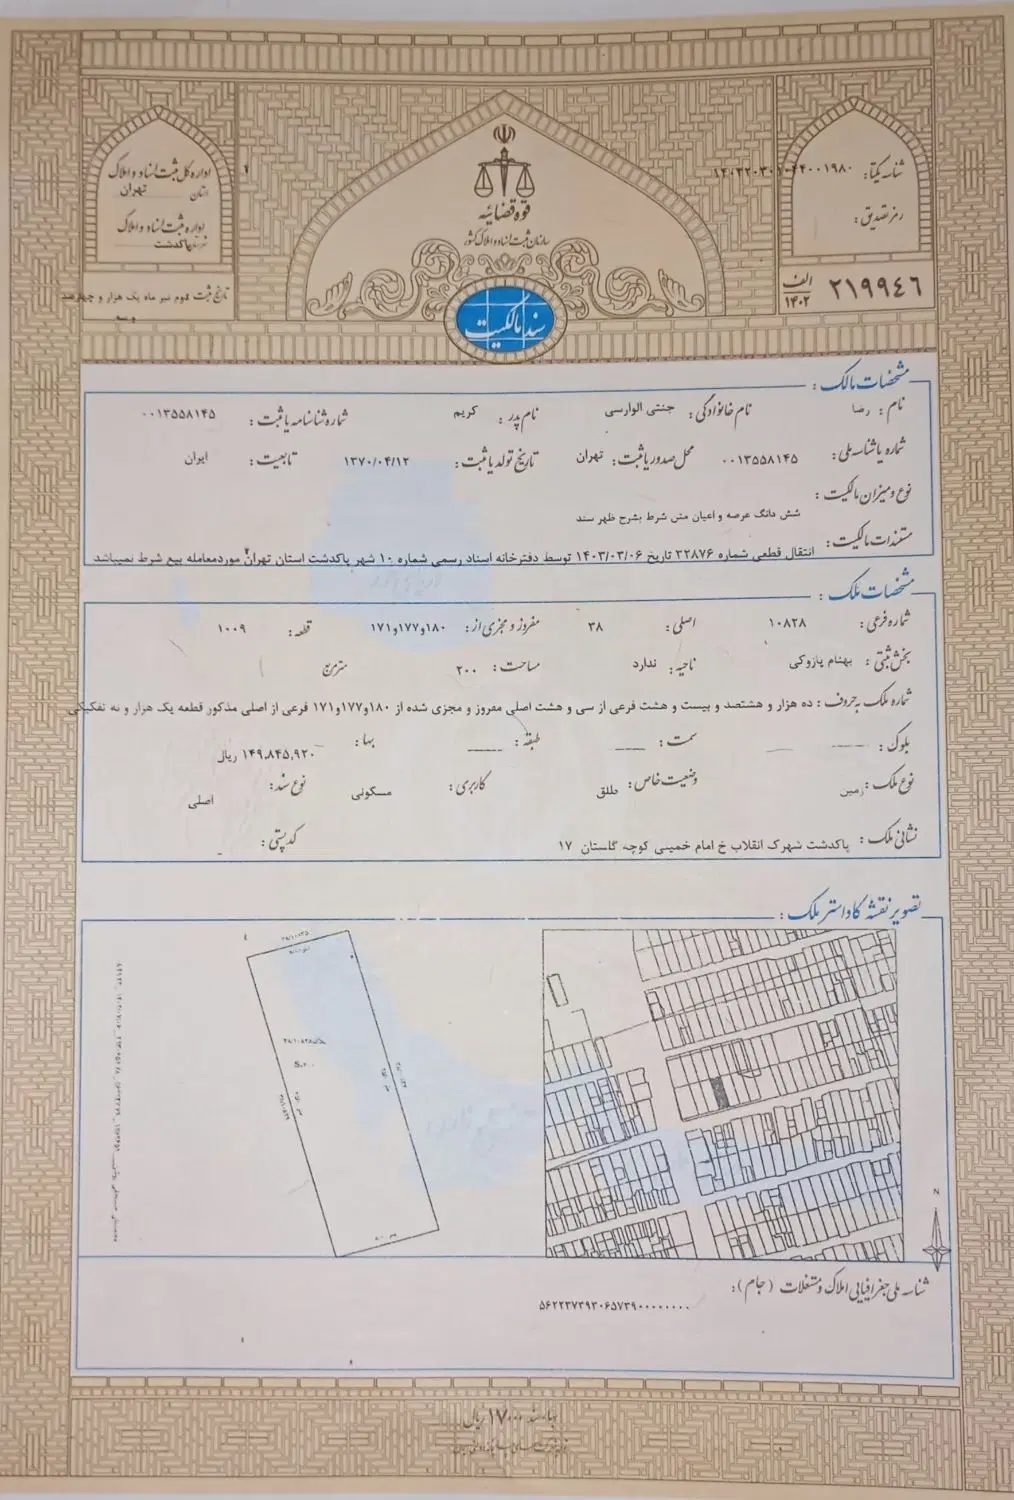 قوه قضائیه
سازمان ثبت اسناد و املاک کشور
سند مالکیت
شناسه یکتا:
رمز تصدیق:
۲۱۹۹۴۶ الف ۱۴۰۲
اداره کل ثبت اسناد و املاک
استان تهران
اداره ثبت اسناد و املاک
پاکدشت
تاریخ ثبت دوم تیر ماه یک هزار و چهارصد
و سه
مشخصات مالک:
نام: رضا نام خانوادگی: جنتی الوارسی نام پدر: کریم شماره شناسنامه یا ثبت: ۰۰۱۳۵۵۸۱۴۵
شماره یا شناسه ملی: ۰۰۱۳۵۵۸۱۴۵ محل صدور یا ثبت: تهران تاریخ تولد یا ثبت: ۱۳۷۰/۰۴/۱۲ تابعیت: ایران
نوع و میزان مالکیت:
شش دانگ عرصه و اعیان متن شرط بشرح ظهر سند
مستندات مالکیت:
انتقال قطعی شماره ۲۲۸۷۶ تاریخ ۱۴۰۳/۰۳/۰۶ توسط دفترخانه اسناد رسمی شماره ۱۰ شهر پاکدشت استان تهران موردمعامله بیع شرط نمیباشد
مشخصات ملک:
شماره فرعی: ۱۰۸۲۸ اصلی: ۳۸ مفروز و مجزی از: ۱۸۰و۱۷۷و۱۷۱ قطعه: ۱۰۰۹
بخش ثبتی: بهنام پازوکی ناحیه: ندارد مساحت: ۲۰۰ مترمربع
شماره ملک به حروف: ده هزار و هشتصد و بیست و هشت فرعی از سی و هشت اصلی مفروز و مجزی شده از ۱۸۰و۱۷۷و۱۷۱ فرعی از اصلی مذکور قطعه یک هزار و نه تفکیکی
بلوک: سمت: طبقه: بها: ۱۴۹,۸۴۵,۹۲۰ ریال
نوع ملک: زمین وضعیت خاص: طلق کاربری: مسکونی نوع سند: اصلی
نشانی ملک: پاکدشت شهرک انقلاب خ امام خمینی کوچه گلستان ۱۷ کد پستی:
تصویر نقشه کاداستر ملک:
N
شناسه ملی جغرافیایی املاک و مستغلات (جام):
بهاء سند ۱۷۰۰۰ ریال